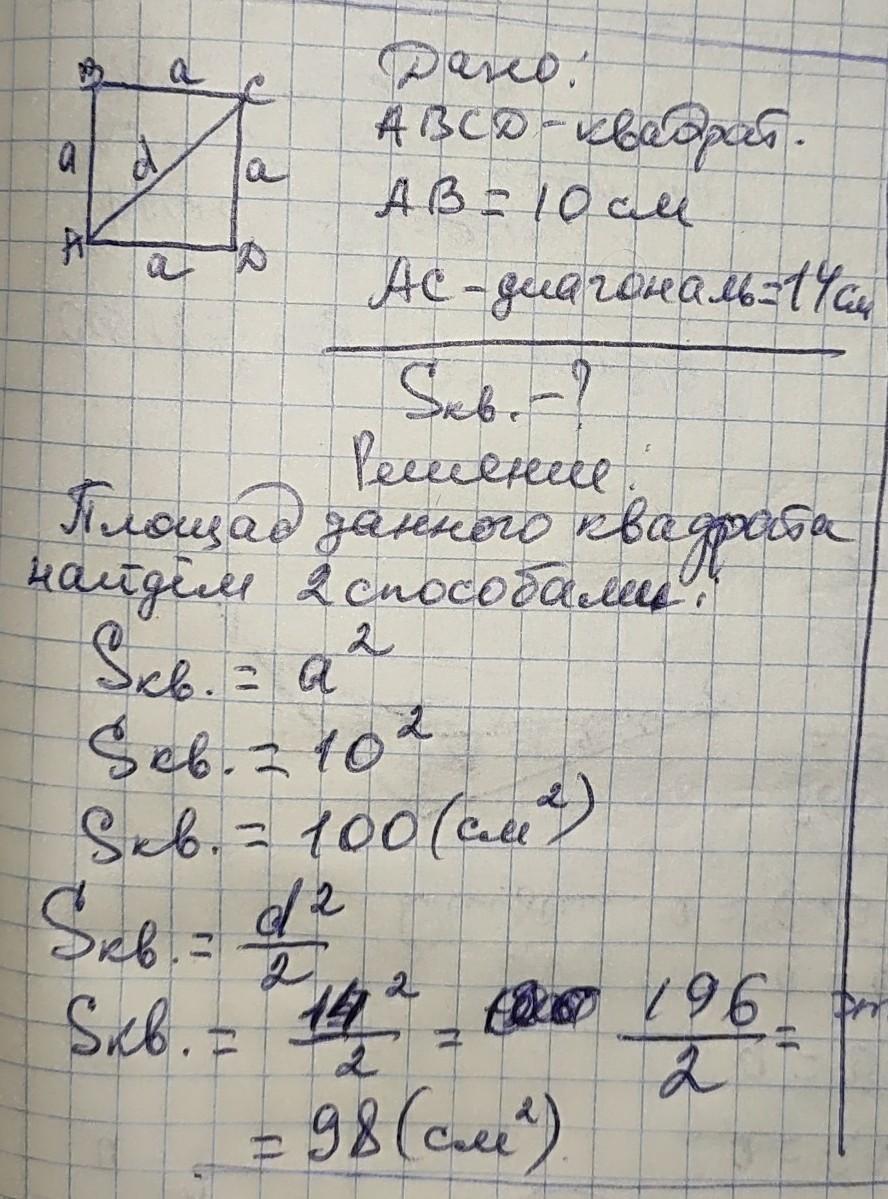 B a C
a d a
A a D
Дано:
ABCD - квадрат.
AB = 10 см
AC - диагональ = 14 см
Sкв. - ?
Решение:
Площад данного квадрата
найдём 2 способами:
Sкв. = a²
Sкв. = 10²
Sкв. = 100 (см²)
Sкв. = d²/2
Sкв. = 14²/2 = 196/2 =
= 98 (см²)